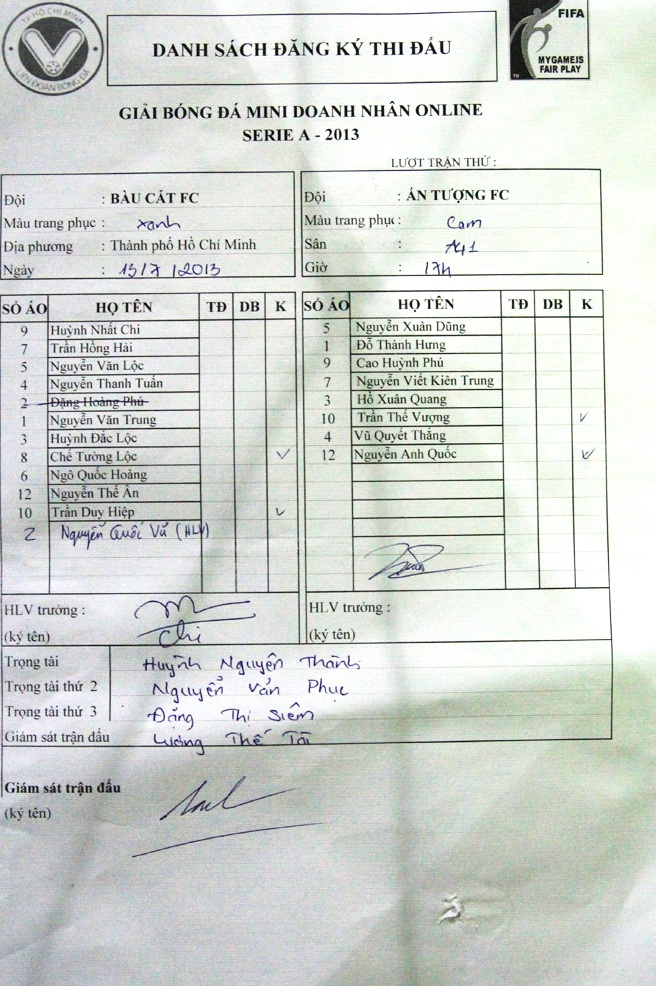 TP HỒ CHÍ MINH
LIÊN ĐOÀN BÓNG ĐÁ
DANH SÁCH ĐĂNG KÝ THI ĐẤU
FIFA
MYGAMEIS
FAIR PLAY
TM
GIẢI BÓNG ĐÁ MINI DOANH NHÂN ONLINE
SERIE A - 2013
LƯỢT TRẬN THỨ :
Đội : BÀU CÁT FC
Màu trang phục : xanh
Địa phương : Thành phố Hồ Chí Minh
Ngày : 13/7/2013
Đội : ẤN TƯỢNG FC
Màu trang phục : Cam
Sân :
Giờ : 17h
SỐ ÁO HỌ TÊN TĐ DB K
9 Huỳnh Nhất Chi
7 Trần Hồng Hải
5 Nguyễn Văn Lộc
4 Nguyễn Thanh Tuấn
2 Đặng Hoàng Phú
1 Nguyễn Văn Trung
3 Huỳnh Đắc Lộc
8 Chế Tường Lộc ✓
6 Ngô Quốc Hoàng
12 Nguyễn Thế Ân
10 Trần Duy Hiệp ✓
2 Nguyễn Quốc Vũ (HLV)
SỐ ÁO HỌ TÊN TĐ DB K
5 Nguyễn Xuân Dũng
1 Đỗ Thành Hưng
9 Cao Huỳnh Phú
7 Nguyễn Viết Kiên Trung
3 Hồ Xuân Quang
10 Trần Thế Vượng ✓
4 Vũ Quyết Thắng
12 Nguyễn Anh Quốc ✓
HLV trưởng :
(ký tên) Chi
HLV trưởng :
(ký tên)
Trọng tài Huỳnh Nguyên Thành
Trọng tài thứ 2 Nguyễn Văn Phục
Trọng tài thứ 3 Đặng Thị Siêm
Giám sát trận đấu Lương Thế Tài
Giám sát trận đấu
(ký tên)